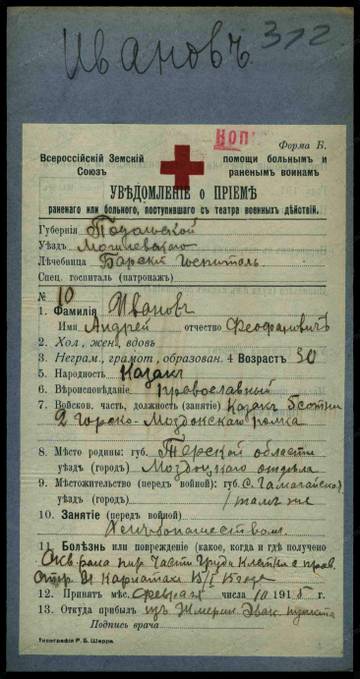 Ивановъ 372
КОП
Форма Б.
Всероссійскій Земскій Союзъ
помощи больнымъ и раненымъ воинамъ
УВѢДОМЛЕНІЕ о ПРІЕМѢ
раненаго или больного, поступившаго съ театра военныхъ дѣйствій.
Губернія Подольской
Уѣздъ Могилевскаго
Лѣчебница Барскій Госпиталь
Спец. госпиталь (патронажъ)
№ 10
1. Фамилія Ивановъ
Имя Андрей отчество Феофановичъ
2. Хол., жен., вдовъ
3. Неграм., грамот., образован. 4 Возрастъ 30
5. Народность Казакъ
6. Вѣроисповѣданіе православный
7. Войсков. часть, должность (занятіе) Казакъ 5 сотни
2 Горско-Моздокскаго полка
8. Мѣсто родины: губ. Терской области
уѣздъ (городъ) Моздокскаго отдѣла
9. Мѣстожительство (передъ войной): губ. с.
уѣздъ (городъ) тамъ же
10. Занятіе (передъ войной)
Хлѣбопашествомъ
11. Болѣзнь или поврежденіе (какое, когда и гдѣ получено
рана части груд. клѣтки с прав.
стор. Карпатахъ
12. Принятъ мѣс. Февраля числа 10 1915 г.
13. Откуда прибылъ изъ Жмерин. Эвак. пункта
Подпись врача
Типографія Р. Б. Шерръ.